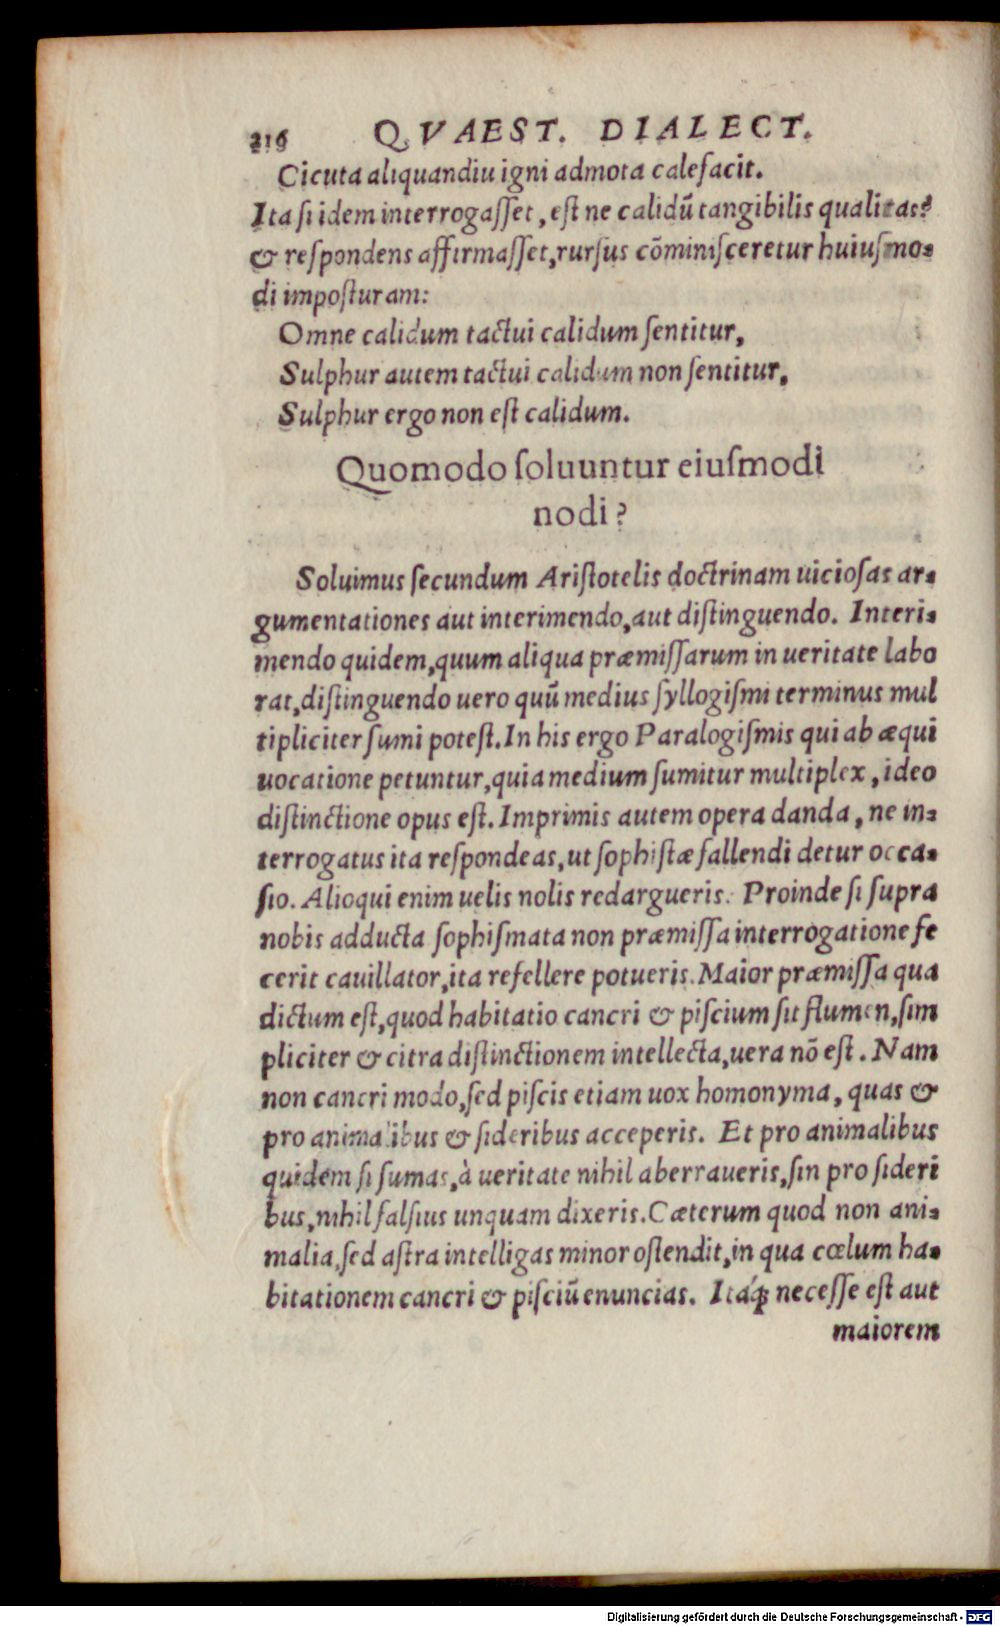 216 QVAEST. DIALECT.
Cicuta aliquandiu igni admota calefacit.
Ita ſi idem interrogaſſet, eſt ne calidũ tangibilis qualitas?
& reſpondens affirmaſſet, rurſus cõminiſceretur huiuſmo-
di impoſturam:
Omne calidum tactui calidum ſentitur,
Sulphur autem tactui calidum non ſentitur,
Sulphur ergo non eſt calidum.
Quomodo ſoluuntur eiuſmodi
nodi?
Soluimus ſecundum Ariſtotelis doctrinam uicioſas ar-
gumentationes aut interimendo, aut diſtinguendo. Interi-
mendo quidem, quum aliqua præmiſſarum in ueritate labo
rat, diſtinguendo uero quũ medius ſyllogiſmi terminus mul
tipliciter ſumi poteſt. In his ergo Paralogiſmis qui ab æqui
uocatione petuntur, quia medium ſumitur multiplex, ideo
diſtinctione opus eſt. Imprimis autem opera danda, ne in-
terrogatus ita reſpondeas, ut ſophiſtæ fallendi detur occa-
ſio. Alioqui enim uelis nolis redargueris. Proinde ſi ſupra
nobis adducta ſophiſmata non præmiſſa interrogatione fe
cerit cauillator, ita refellere potueris. Maior præmiſſa qua
dictum eſt, quod habitatio cancri & piſcium ſit flumen, ſim
pliciter & citra diſtinctionem intellecta, uera nõ eſt. Nam
non cancri modo, ſed piſcis etiam uox homonyma, quas &
pro animalibus & ſideribus acceperis. Et pro animalibus
quidem ſi ſumas, à ueritate nihil aberraueris, ſin pro ſideri
bus, nihil falſius unquam dixeris. Cæterum quod non ani-
malia, ſed aſtra intelligas minor oſtendit, in qua cœlum ha-
bitationem cancri & piſciũ enuncias. Itáq; neceſſe eſt aut
maiorem
Digitalisierung gefördert durch die Deutsche Forschungsgemeinschaft - DFG